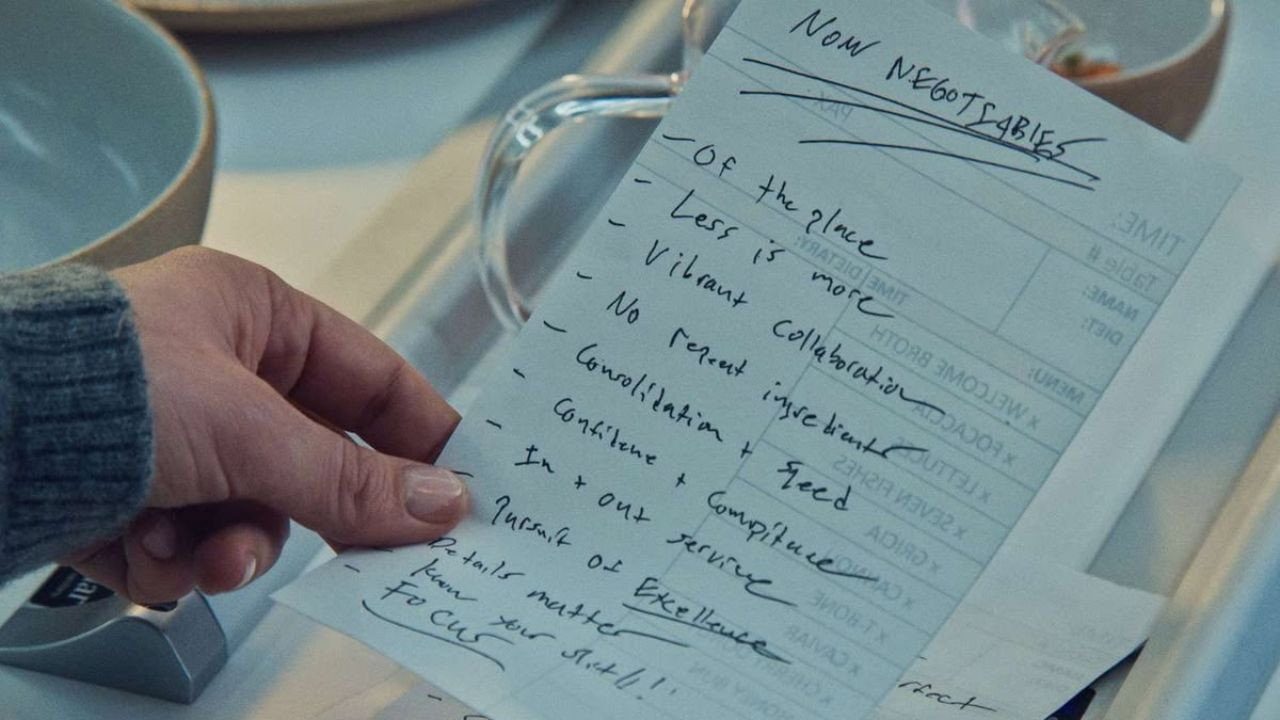 NON NEGOTIABLES
- Of the place
- Less is more
- Vibrant Collaboration
- No repeat ingredients
- Consolidation + speed
- Confidence + Competence
- In + out service
- Pursuit of Excellence
- Details matter
- know your shit!!
FOCUS
PAX:
TIME:
Table #
NAME:
DIET:
TIME DIETARY:
MENU:
x WELCOME BROTH
x FOCACCIA
x LETTUCE
SEVEN FISHES
x GRICIA
x T BONE
x CAVIAR
rfect